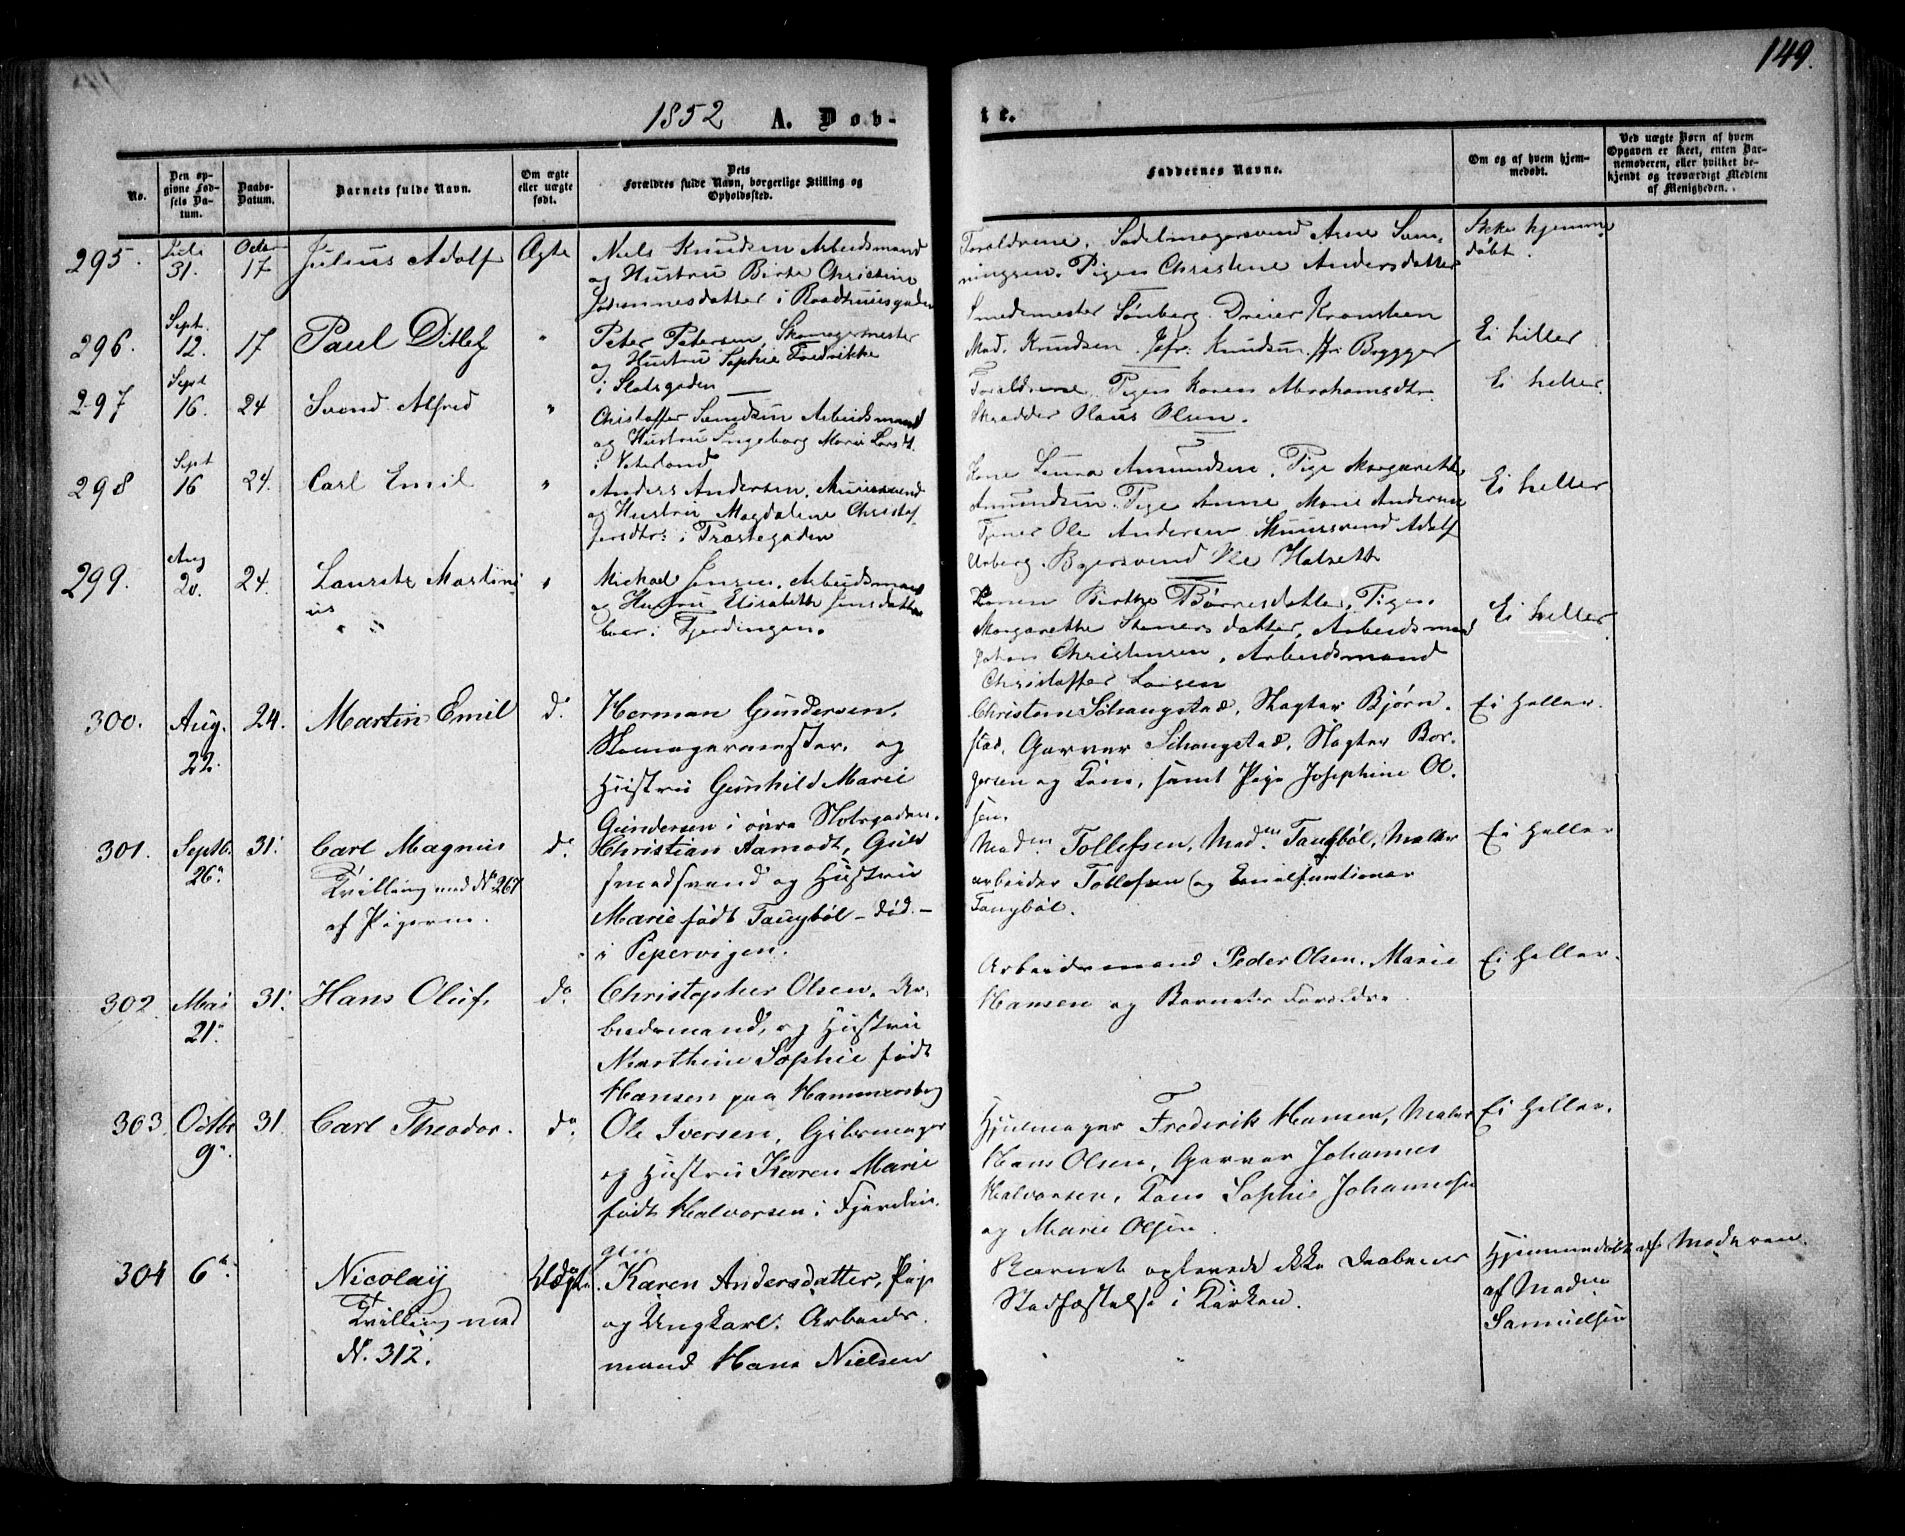 149.
1852 A. Døb-
te.
No.
Den opgivne Fødsels Datum.
Daabs-Datum.
Barnets fulde Navn.
Om ægte eller uægte født.
Dets Forældres fulde Navn, borgerlige Stilling og Opholdssted.
Faddernes Navne.
Om og af hvem hjemmedøbt.
Ved uægte Børn af hvem Opgaven er skeet, enten Barnemoderen, eller hvilket bekjendt og troværdigt Medlem af Menigheden.
295. Juli 31. Octbr 17 Julius Adolf Ægte
Niels Knudsen Arbeidsmand
og Hustru Birte Christine
Johannesdatter i Raadhuusgaden
Forældrene, Sadelmagersvend Arne
Pigen Christine Andersdatter
Ikke hjemme
døbt.
296. Sept. 12. 17 Paul Ditlef "
Peter Petersen, Skomagermester
og Hustru Sophie Fredrikke
i Slotsgaden
Smedemester Sønberg. Dreier Kronsteen
Mad. Knudsen. Jofr. Knudsen Brygger
Ei heller
297 Sept 16. 24 Svend Alfred "
Christoffer Svendsen Arbeidsmand
og Hustru Ingeborg Marie Larsd.
i Vaterland
Forældrene, Pigen Karen Abrahamsdtr.
Skrædder Olaus Olsen.
Ei heller
298 Sept 16 24. Carl Emil "
Anders Andersen, Muursvend
og Hustru Magdalene Christof
fersdtr: i Præstegaden
Kone Laura Amundsen, Pige Margarethe
Amundsen. Pige Anne Marie Andersen
Tjener Ole Andersen Muursvend Adolf
Urberg. Bagersvend Ole Halseth
Ei heller
299. Aug 20. 24. Lauritz Martini
us
" "
Michael Jensen, Arbeidsmand
og Hustru Elisabeth Jensdatter
boer i Fjerdingen.
Konen Birthe Børresdatter, Pigen
Margarethe Steners datter, Arbeidsmand
Johan Christensen, Arbeidsmand
Christoffer Larsen
Ei heller
300. Aug. 22. 24. Martin Emil do.
Herman Gundersen,
Skomagermester, og
Hustru Gunhild Marie
Gundersen i øvre Slotsgaden.
Christian Schangstad, Slagter Bjørn
stad, Garver Schangstad, Slagter Bor-
gersen og Kone, samt Pige Josephine Ol-
sen.
Ei heller.
301. Septb. 26. 31. Carl Magnus do.
Tvilling med No 267
af Pigerne.
Christian Aamodt, Guld
smedsvend og Hustru
Marie født Taugbøl - død. -
i Pepervigen.
Maden Tollefsen, Maden Taugbøl, Maler
arbeider Tollefsen og Canalfunctionær
Taugbøl.
Ei heller
302. Mai 21. 31. Hans Oluf, do.
Christopher Olsen, Ar-
beidsmand, og Hustru
Marthine Sophie født
Hansen paa Hammersborg
Arbeidsmand Peder Olsen, Marie
Hansen og Barnets Forældre.
Ei heller.
303. Octbr 9. 31. Carl Theodor. do.
Ole Iversen, Gibsmager
og Hustru Karen Marie
født Halvorsen i Fjerdin-
gen
Hjulmager Frederik Hansen, Maler
Hans Olsen, Garver Johannes
Halvorsen, Kone Sophie Johannesen
og Marie Olsen.
Ei heller.
304 6. Nicolay Uægte
Tvilling med
N. 312.
Karen Andersdatter, Pige
og Ungkarl. Arbeids-
mand Hans Nielsen
Barnet oplevede ikke Daabens
Stadfæstelse i Kirken.
Hjemmedøbt
af Maden
Samuelsen
af Moderen.